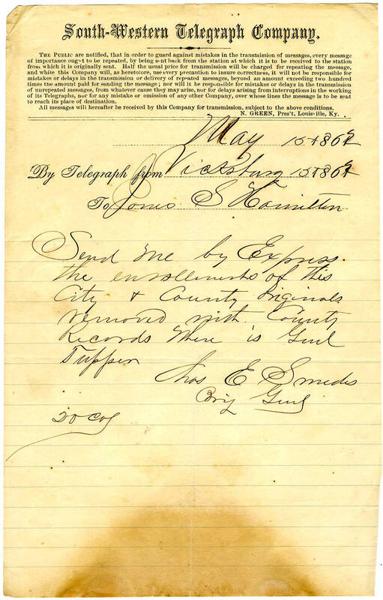 South-Western Telegraph Company.
The Public are notified, that in order to guard against mistakes in the transmission of messages, every message
of importance ought to be repeated, by being sent back from the station at which it is to be received to the station
from which it is originally sent. Half the usual price for transmission will be charged for repeating the message,
and while this Company will, as heretofore, use every precaution to insure correctness, it will not be responsible
for mistakes or delays in the transmission or delivery of repeated messages, beyond an amount exceeding two hundred
times the amount paid for sending the message; nor will it be responsible for mistakes or delays in the transmission
of unrepeated messages, from whatever cause they may arise, nor for delays arising from interruptions in the working
of its Telegraphs, nor for any mistake or omission of any other Company, over whose lines the message is to be sent
to reach its place of destination.
All messages will hereafter be received by this Company for transmission, subject to the above conditions.
N. GREEN, Pres't, Louisville, Ky.
May 15 1862
By Telegraph from Vicksburg 15 1862
To Jones S Hamilton
Send me by Express
the enrollments of this
City & County originals
removed with County
Records Where is Genl
Tupper
Chas E Smedes
Brig Genl